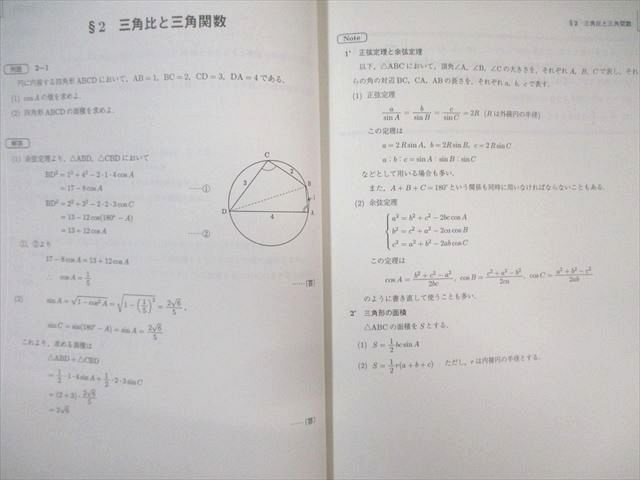 §2 三角比と三角関数
例題 2-1
円に内接する四角形ABCDにおいて，AB=1，BC=2，CD=3，DA=4である．
(1) cos Aの値を求めよ．
(2) 四角形ABCDの面積を求めよ．
解答
(1) 余弦定理より，△ABD，△CBDにおいて
BD²=1²+4²-2・1・4cos A
=17-8cos A ――①
BD²=2²+3²-2・2・3cos C
=13-12cos(180°-A)
=13+12cos A ――②
①，②より
17-8cos A=13+12cos A
∴ cos A=1/5 ……(答)
(2) sin A=√(1-cos²A)=√(1-(1/5)²)=2√6/5．
sin C=sin(180°-A)=sin A=2√6/5
これより，求める面積は
△ABD+△CBD
=1/2・1・4sin A+1/2・2・3sin C
=(2+3)・2√6/5
=2√6 ……(答)
C
3
2
B
1
D
4
A
§2 三角比と三角関数
Note
1° 正弦定理と余弦定理
以下，△ABCにおいて，頂角∠A，∠B，∠Cの大きさを，それぞれA，B，Cで表し，それ
らの角の対辺BC，CA，ABの長さを，それぞれa，b，cで表す．
(1) 正弦定理
a/sin A=b/sin B=c/sin C=2R (Rは外接円の半径)
この定理は
a=2Rsin A，b=2Rsin B，c=2Rsin C
a：b：c=sin A：sin B：sin C
などとして用いる場合も多い．
また，A+B+C=180°という関係も同時に用いなければならないこともある．
(2) 余弦定理
a²=b²+c²-2bc cos A
b²=c²+a²-2ca cos B
c²=a²+b²-2ab cos C
この定理は
cos A=(b²+c²-a²)/2bc，cos B=(c²+a²-b²)/2ca，cos C=(a²+b²-c²)/2ab
のように書き直して使うことも多い．
2° 三角形の面積
△ABCの面積をSとする．
(1) S=1/2 bc sin A
(2) S=1/2 r(a+b+c) ただし，rは内接円の半径とする．